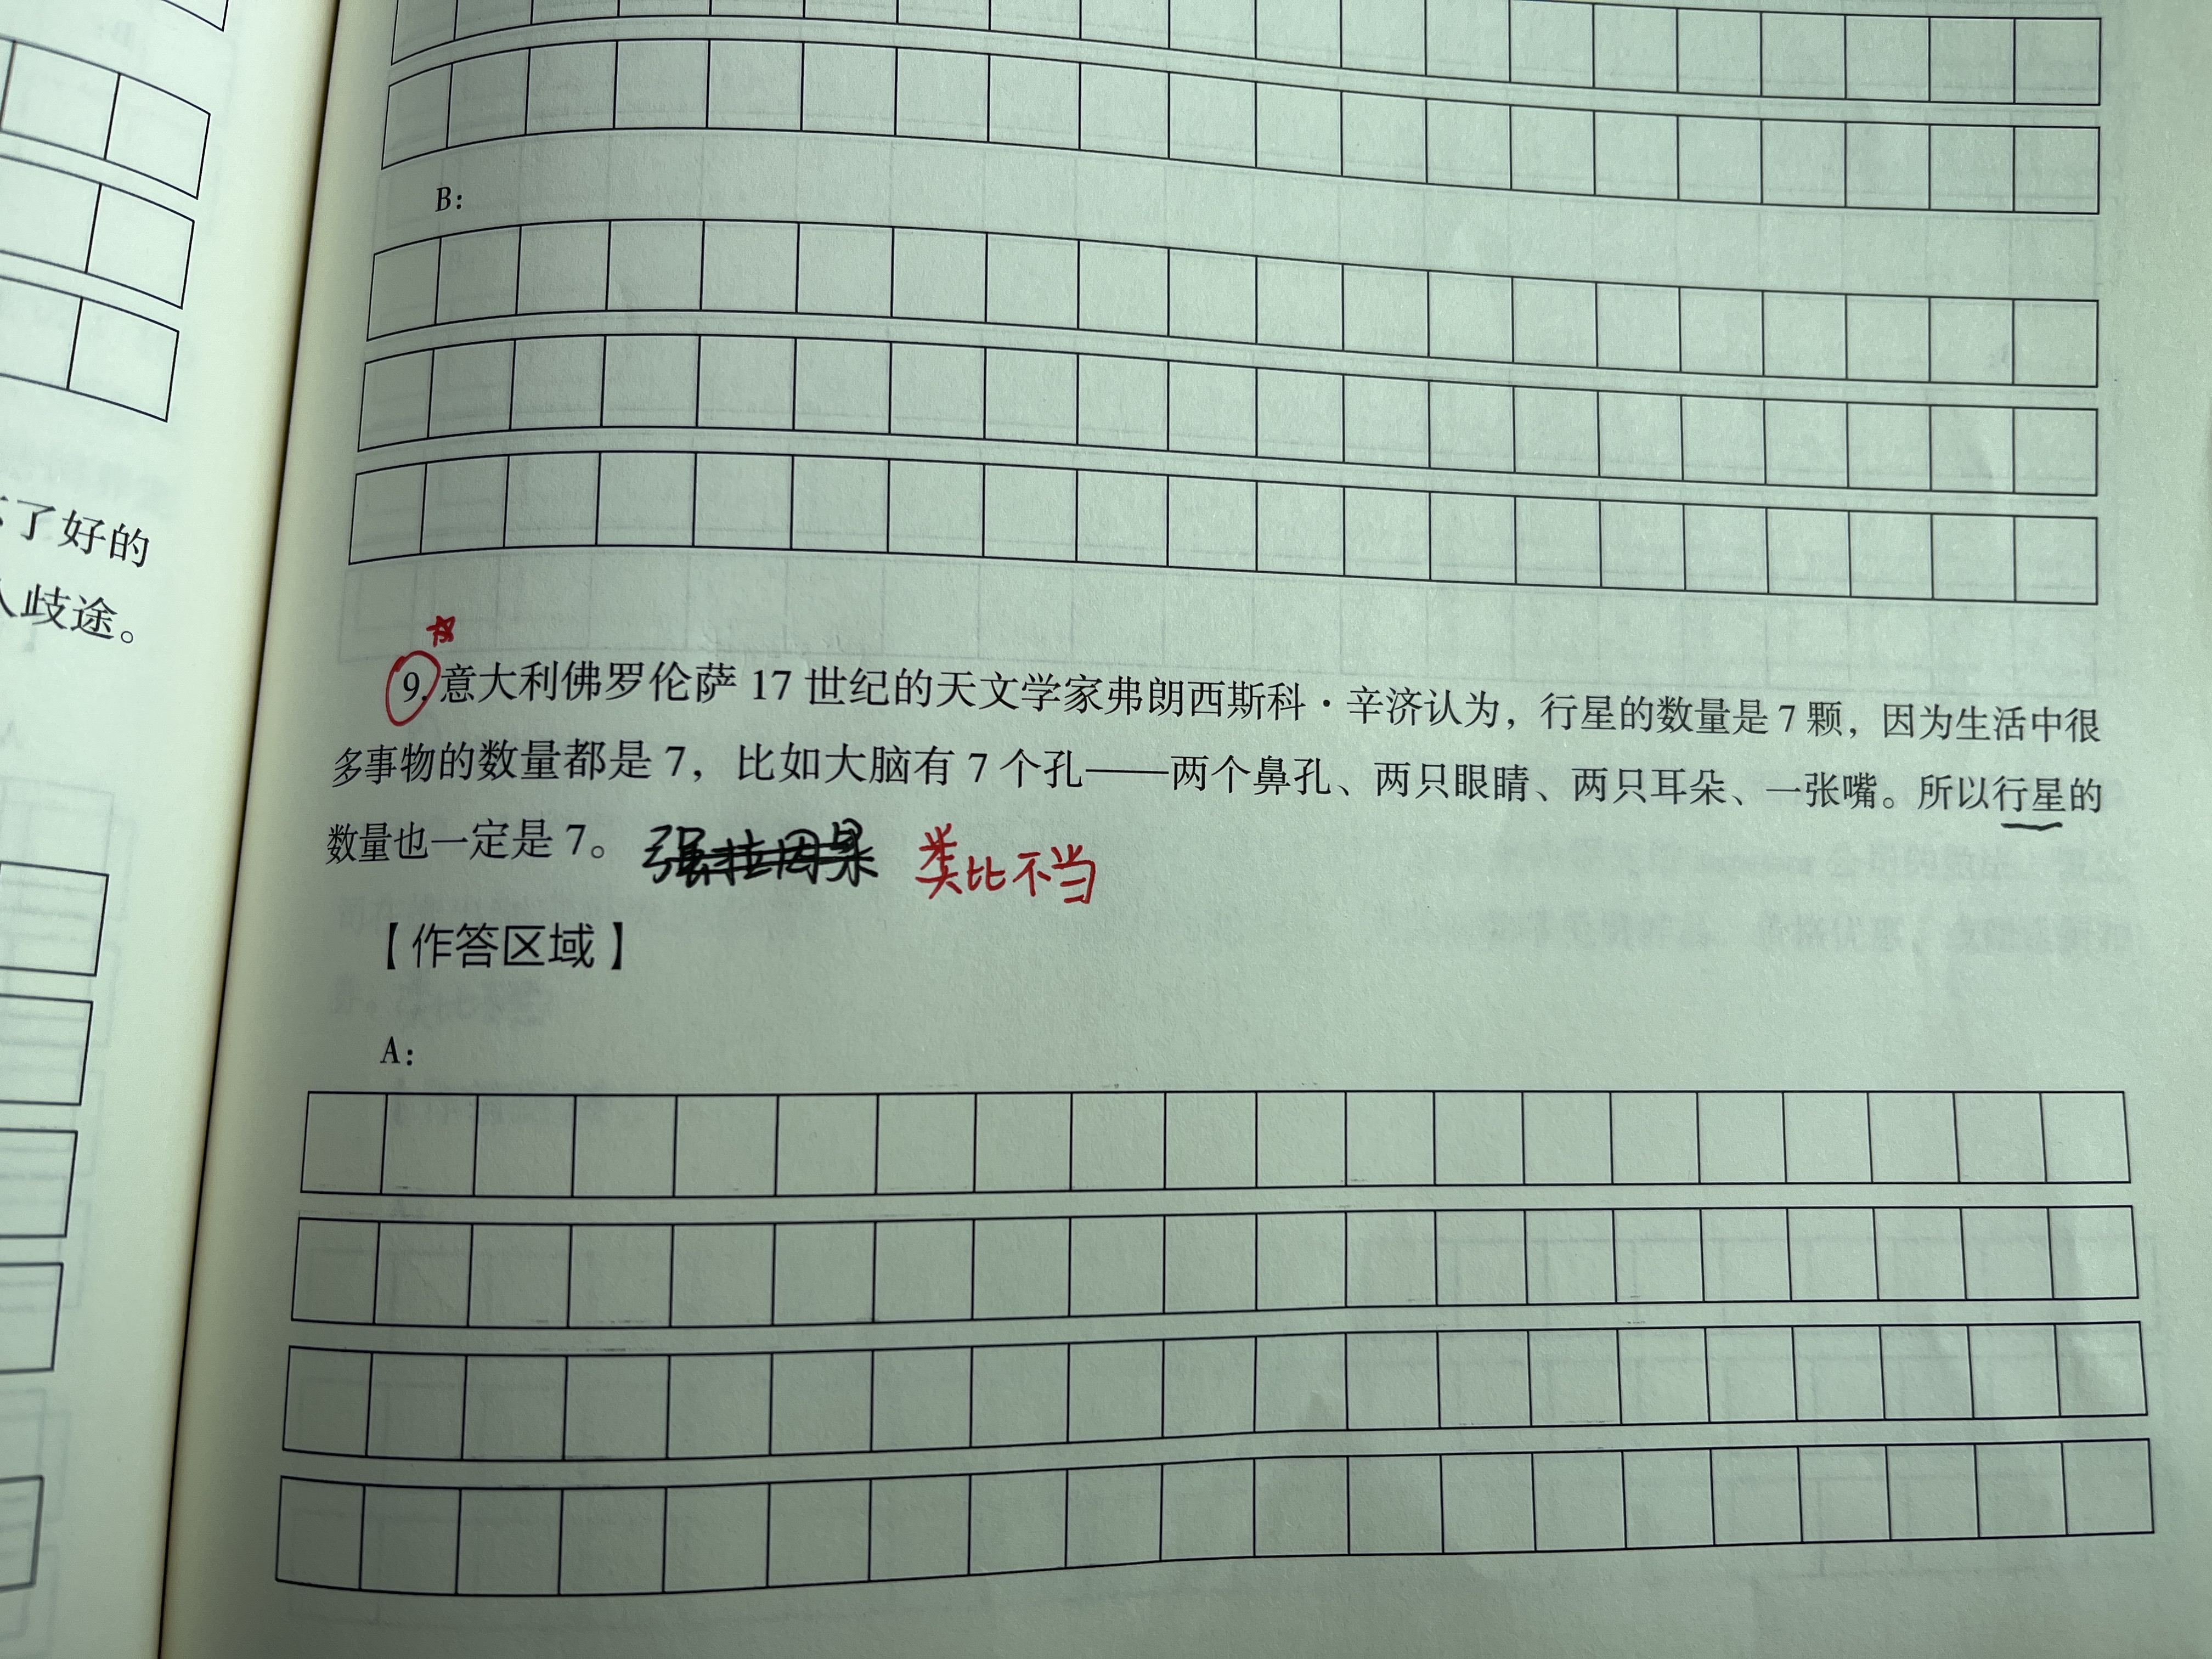 了好的
歧途。
B:
9. 意大利佛罗伦萨 17 世纪的天文学家弗朗西斯科·辛济认为，行星的数量是 7 颗，因为生活中很
多事物的数量都是 7，比如大脑有 7 个孔——两个鼻孔、两只眼睛、两只耳朵、一张嘴。所以行星的
数量也一定是 7。 强拉因果 类比不当
【作答区域】
A: